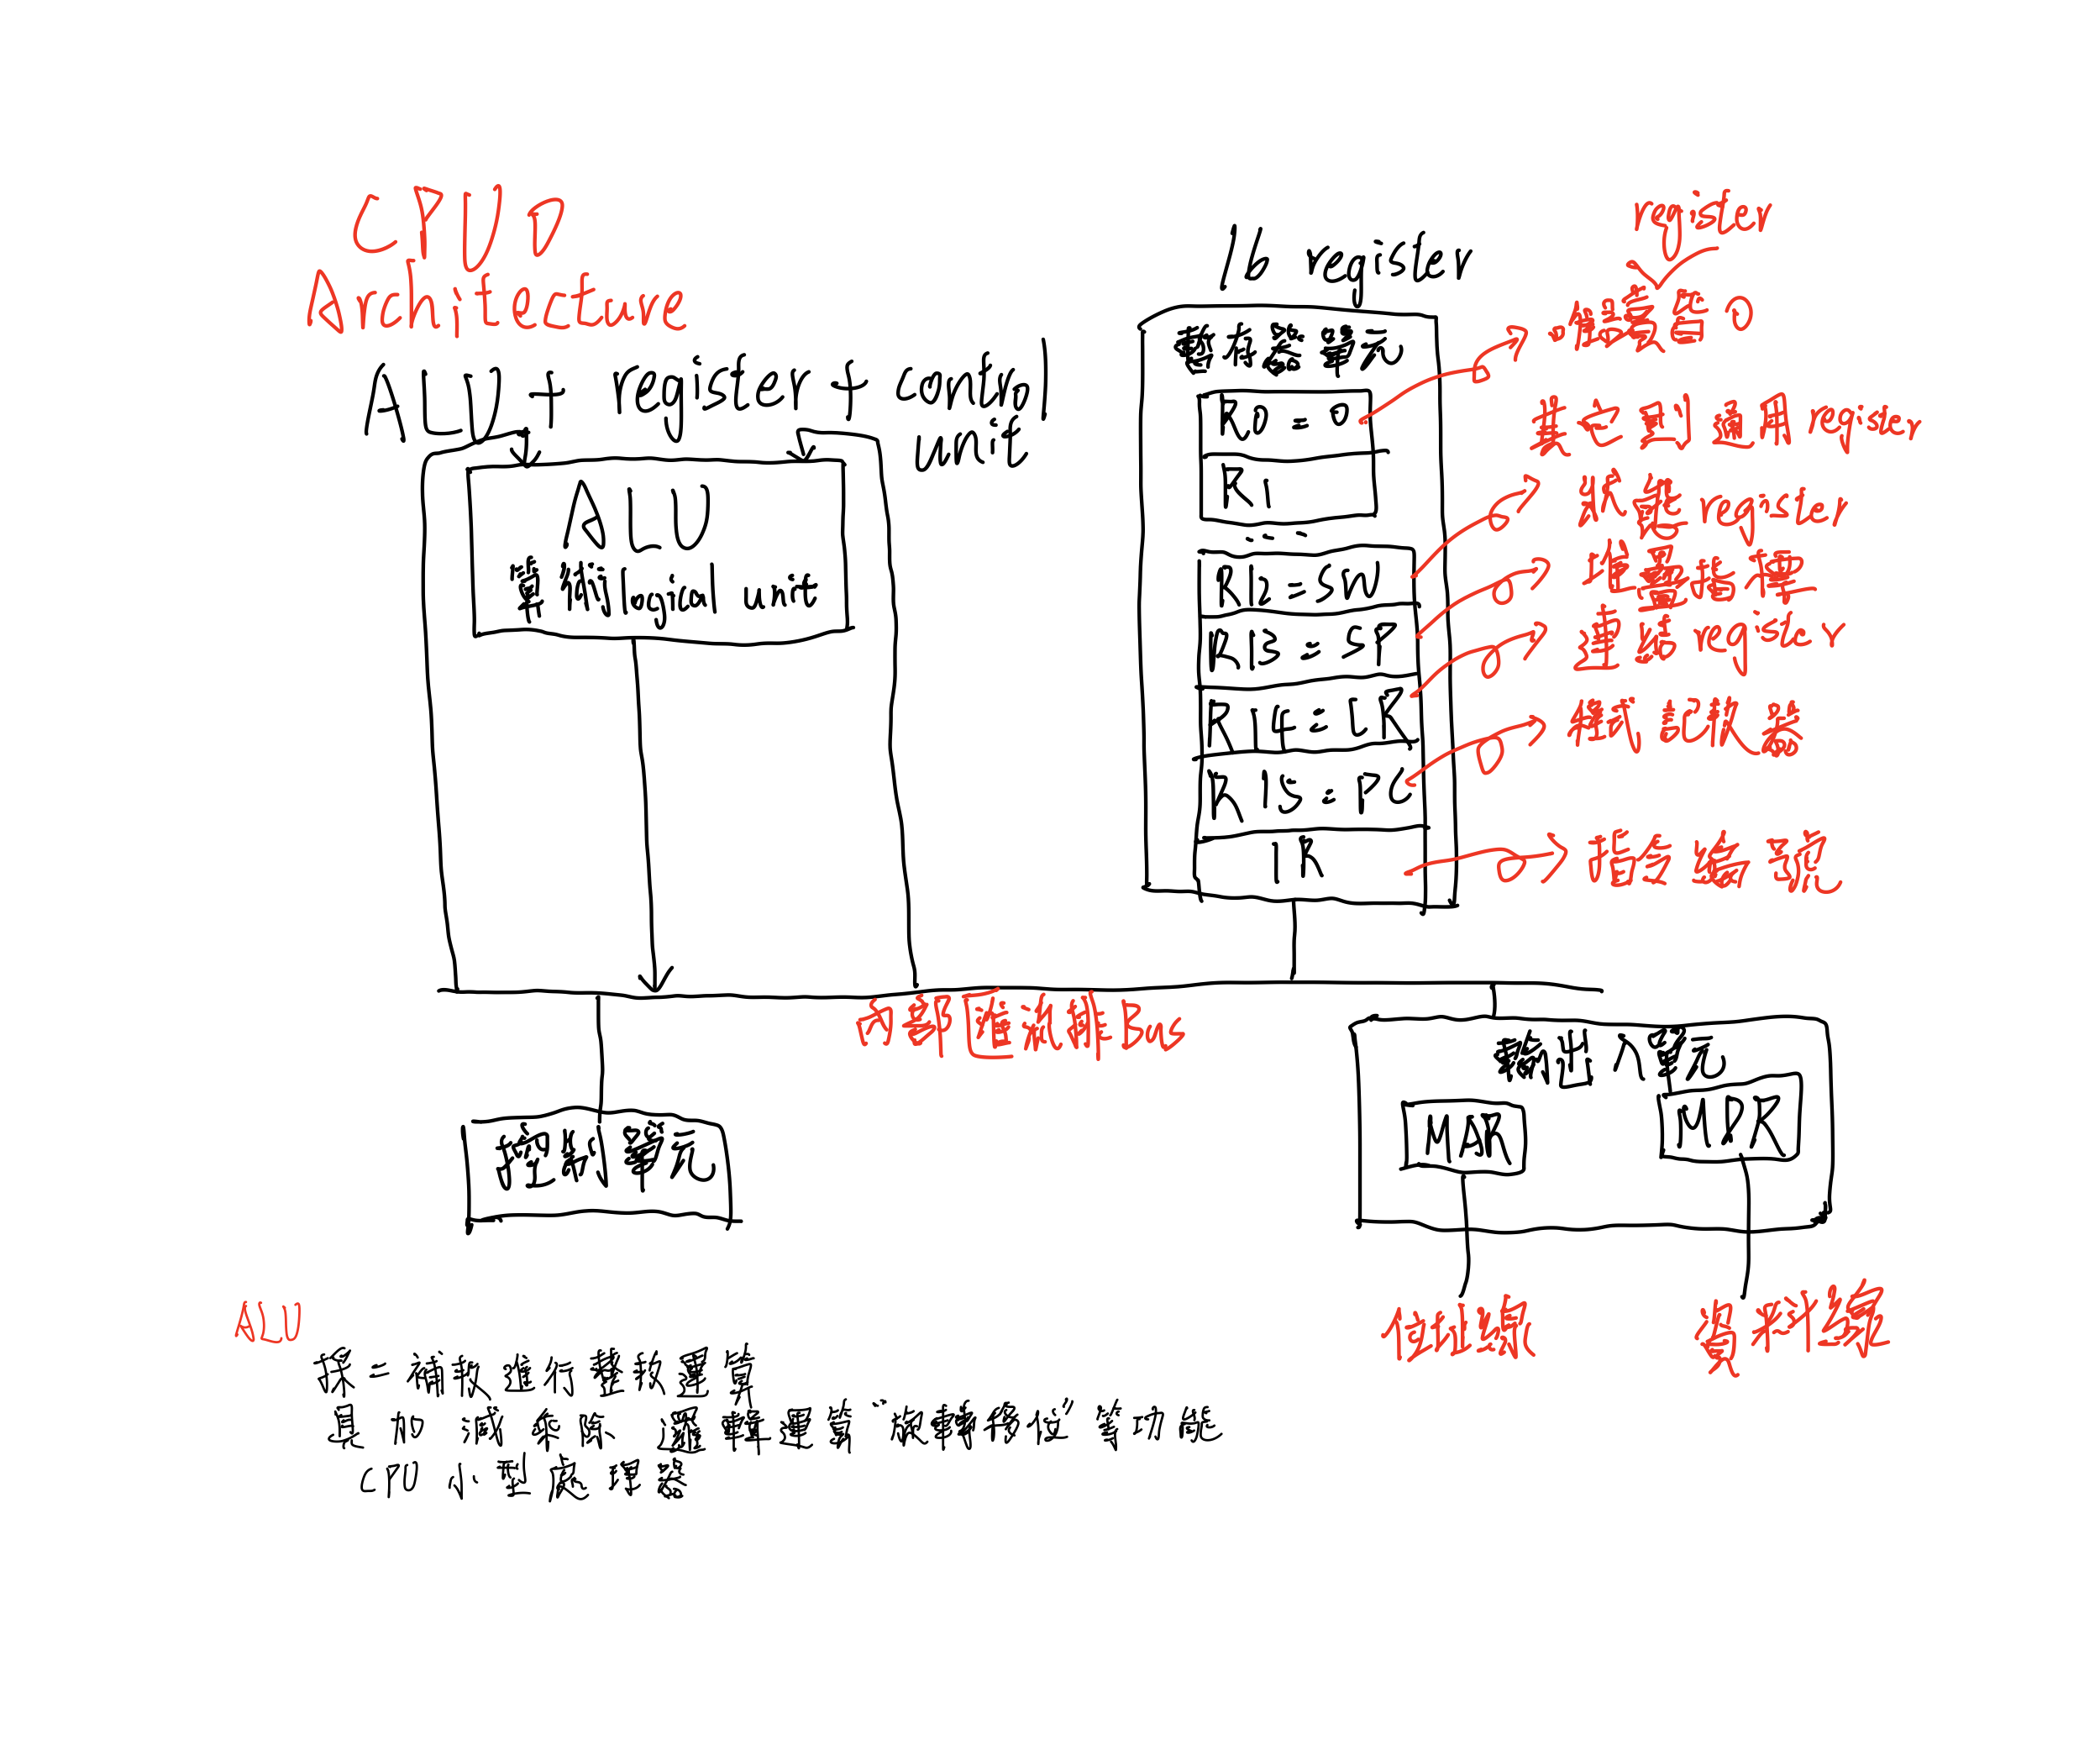 CPU0
Architecture
ALU + register + control
unit
ALU
算術 logical unit
16 register
暫存器單元
R0 = 0
R1
...
R12 = SW
R13 = SP
R14 = LR
R15 = PC
IR
register
唯讀常數0
其它型通用register
狀態register
堆疊指標
連結register
程式記数器
指令编號
內部匯流排Bus
控制單元
輸出入單元
MAR
MDR
位址線
資料線
ALU
採二補数進行整数運算
具加減乘除 邏輯運算"旋轉移位"等功能
CPU小型處理器